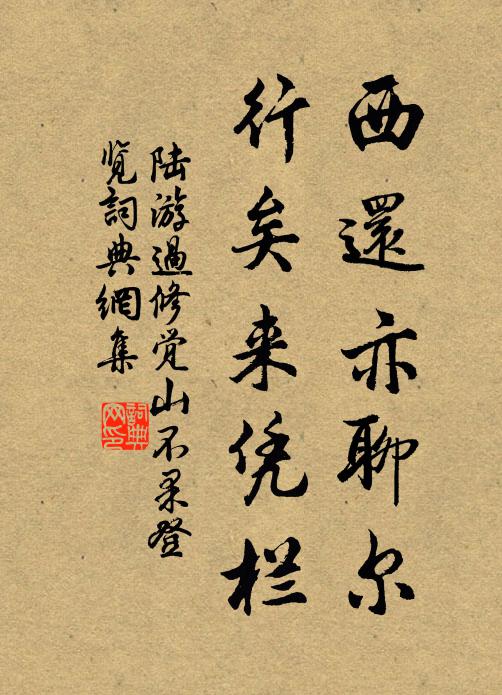 西還亦聊尔
行矣来凭栏
陆游過修觉山不果登
览詞典網集
詞典
网印